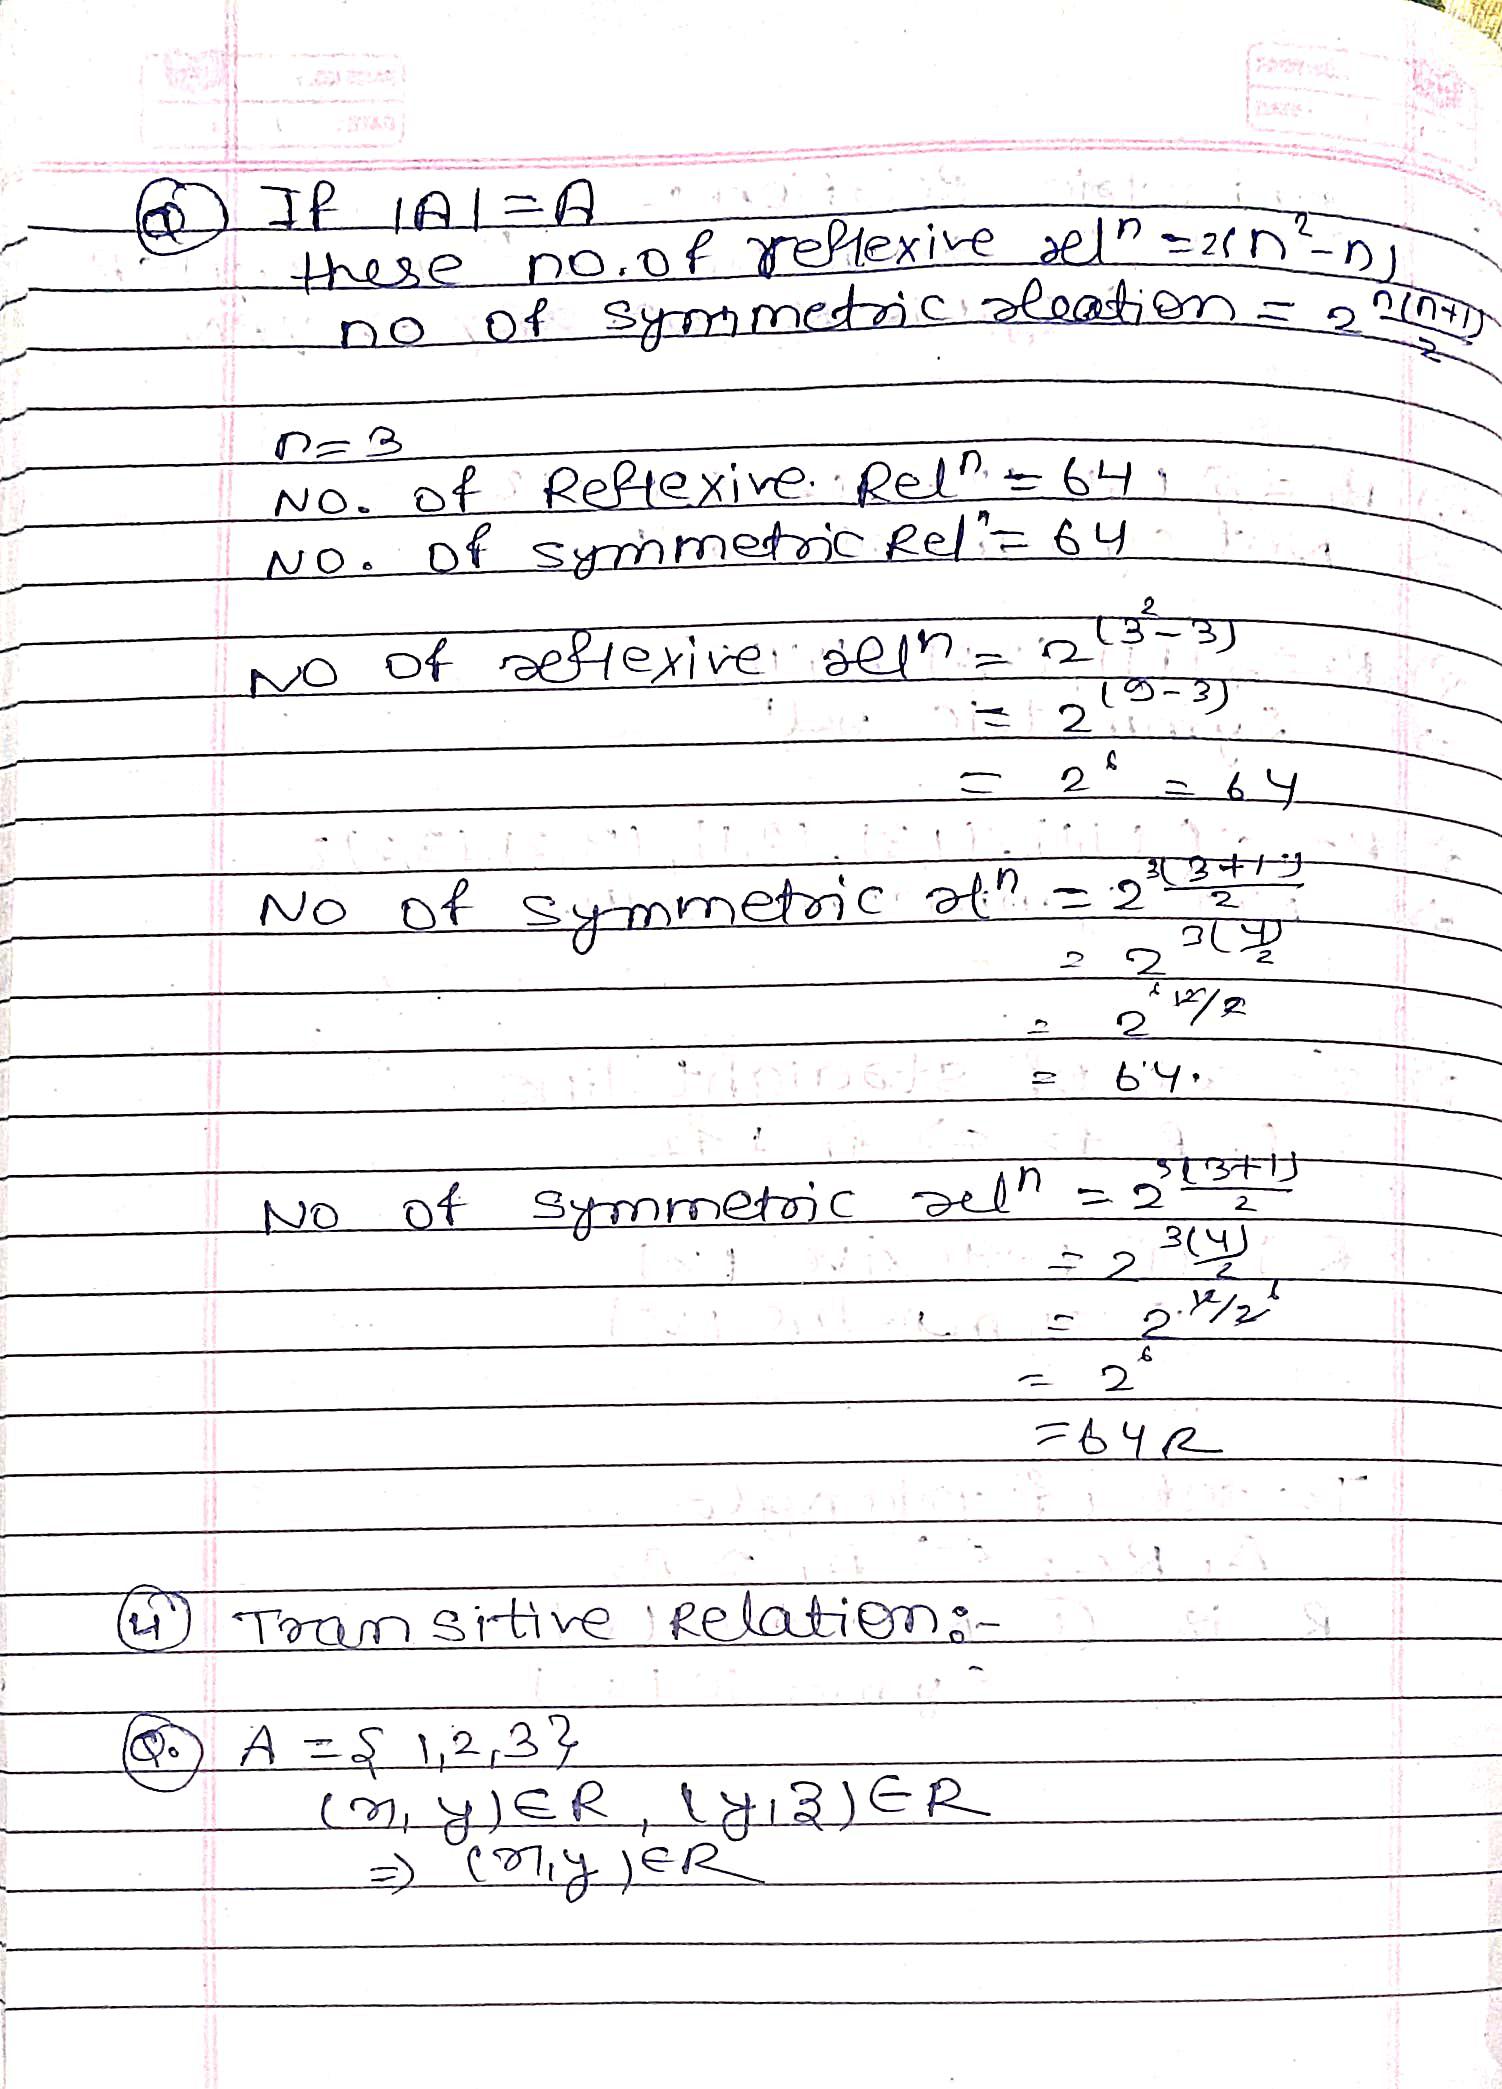 Q If |A| = A
these no. of reflexive relⁿ = 2(n²-n)
no of symmetric rleation = 2^n(n+1)/2
n=3
NO. of Reflexive Relⁿ = 64
NO. of symmetric Relⁿ = 64
NO of reflexive relⁿ = 2^(3²-3)
= 2^(9-3)
= 2⁶ = 64
NO of symmetric rlⁿ = 2^3(3+1)/2
= 2^3(4)/2
= 2^12/2 6
= 64.
NO of symmetric relⁿ = 2^3(3+1)/2
= 2^3(4)/2
= 2^12/2 6
= 2⁶
= 64 R
(4) Transitive Relation:-
Q. A = {1,2,3}
(x, y) ∈ R, (y, z) ∈ R
⇒ (x, y) ∈ R